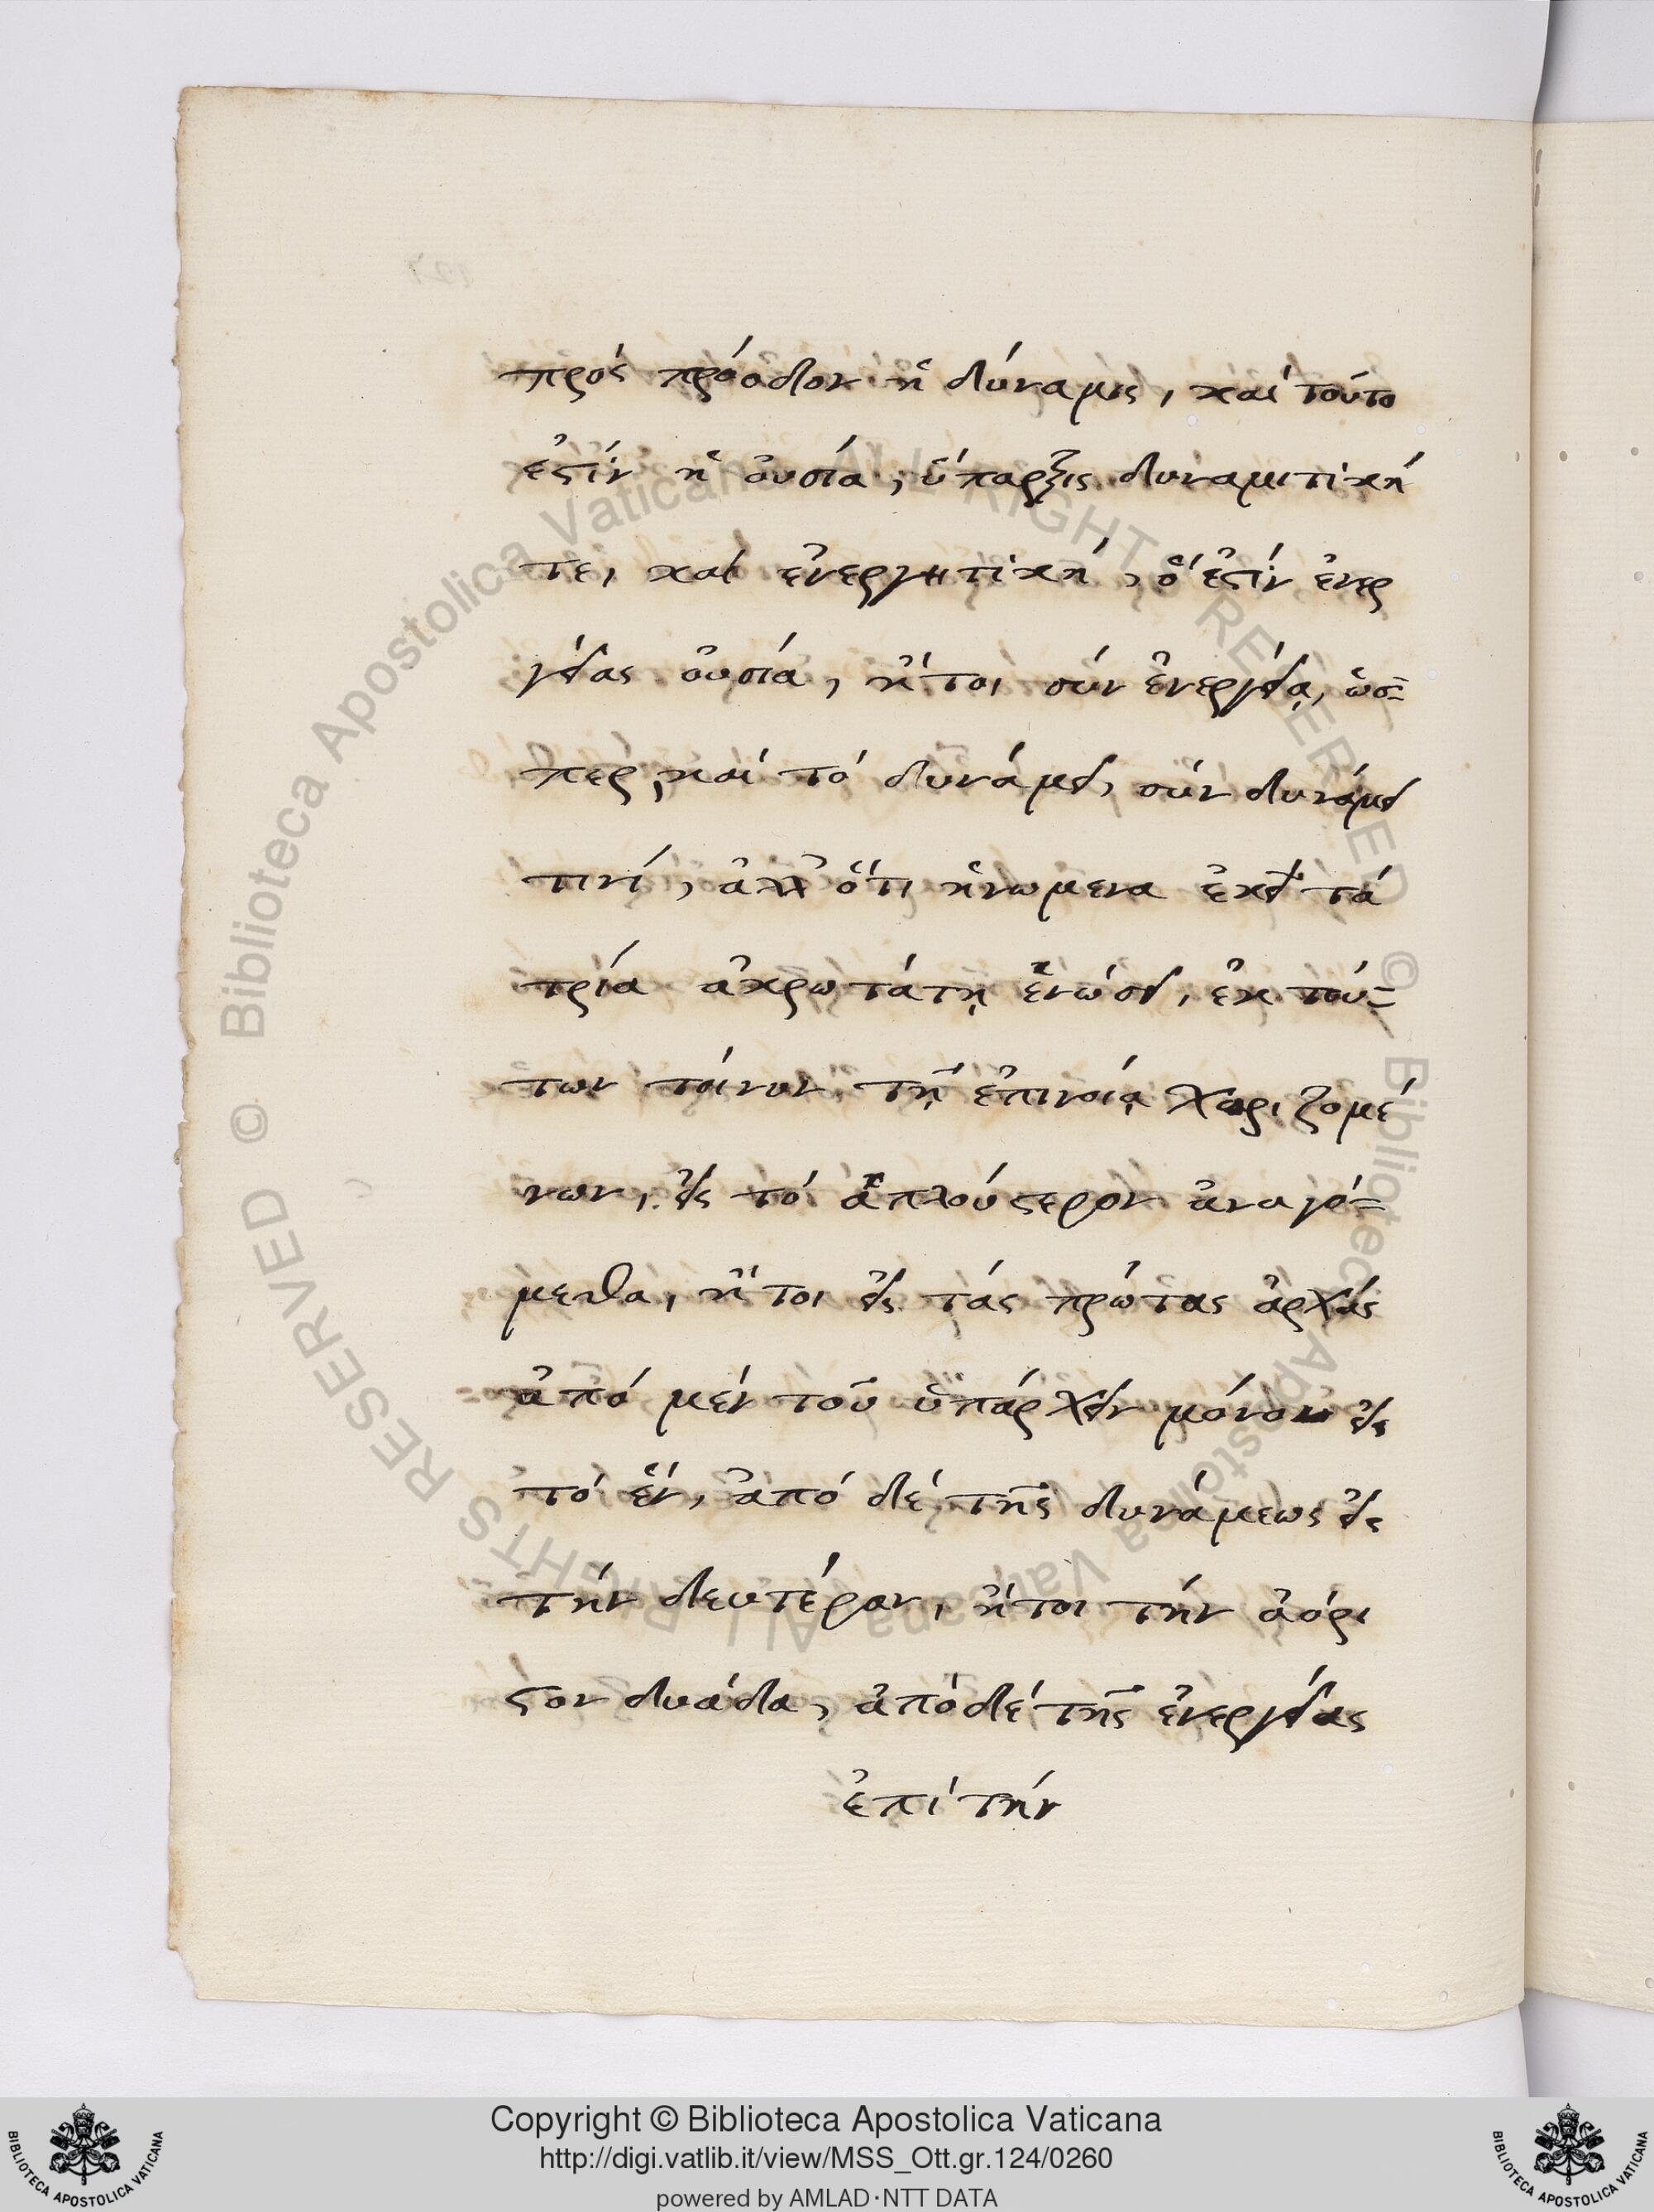 πρός πρόοδον ἡ δύναμις, καί τούτο
ἐστίν ἡ οὐσία, ὕπαρξις δυναμιτικὴ
τε, καί ἐνεργητική, ὅ ἐστίν ἐνερ
γείας οὐσία, ἤτοι σύν ἐνεργείᾳ, ὡσ=
περ καί τό δυνάμει, σύν δυνάμει
τινί, ἀλλ' ὅτι ἡνωμενα ἐκεῖ τά
τρία ἀκρωτάτῃ ἑνώσει, ἐκ τού=
των τοίνυν τῇ ἐπινοίᾳ χωριζομέ
νων, εἰς τό ἁπλούστερον ἀναγό=
μεθα, ἤτοι εἰς τάς πρώτας ἀρχάς
ἀπό μέν τοῦ ὑπάρχειν μόνον εἰς
τό ἕν, ἀπό δέ τῆς δυνάμεως εἰς
τήν δευτέραν, ἤτοι τήν ἀόρι
στον δυάδα, ἀπό δέ τῆς ἐνεργείας
ἐπί τήν
© Biblioteca Apostolica Vaticana ALL RIGHTS RESERVED © Biblioteca Apostolica Vaticana ALL RIGHTS RESERVED
Copyright © Biblioteca Apostolica Vaticana
http://digi.vatlib.it/view/MSS_Ott.gr.124/0260
powered by AMLAD·NTT DATA
BIBLIOTECA APOSTOLICA VATICANA
BIBLIOTECA APOSTOLICA VATICANA